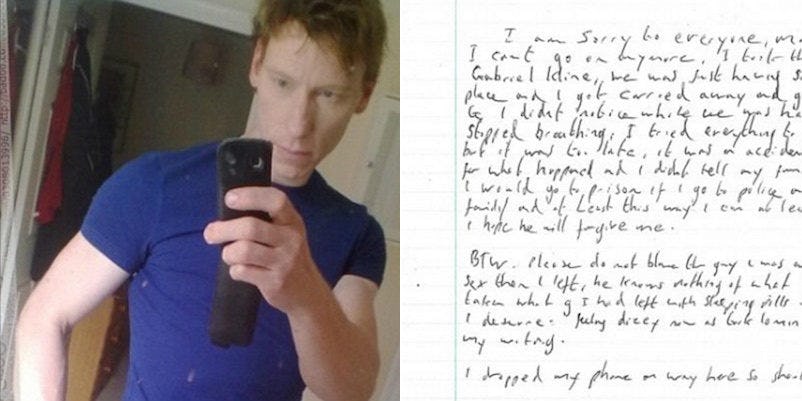 I am sorry to everyone, m
I cant go on anymore, I took th
Gabriel kline, we was just having s
place and I got carried away and g
I didnt notice while we was ha
stopped breathing. I tried everything to
but it was to late, it was an acciden
for what happned and I didnt tell my fam
I would go to prison if I go to police
family and at least this way I can at lea
I hope he will forgive me.
BTW. Please do not blame the guy I was
sex then I left, he knows nothing of what
taken what g I had left with sleeping pills
I deserve. feeling dizzy now as took 10 min
my writing.
I dropped my phone on way here so shou